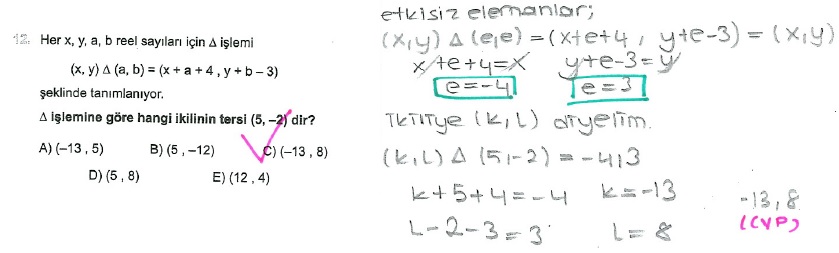 12. Her x, y, a, b reel sayıları için Δ işlemi
(x, y) Δ (a, b) = (x + a + 4 , y + b – 3)
şeklinde tanımlanıyor.
Δ işlemine göre hangi ikilinin tersi (5, –2) dir?
A) (–13 , 5) B) (5 , –12) C) (–13 , 8)
D) (5 , 8) E) (12 , 4)
etkisiz elemanlar;
(x,y) Δ (e,e) = (x+e+4 , y+e-3) = (x,y)
x+e+4=x y+e-3=y
e=-4 e=3
İkiliye (k,L) diyelim.
(k,L) Δ (5,-2) = -4,3
k+5+4=-4 k=-13
L-2-3=3 L=8
-13,8
(CVP)